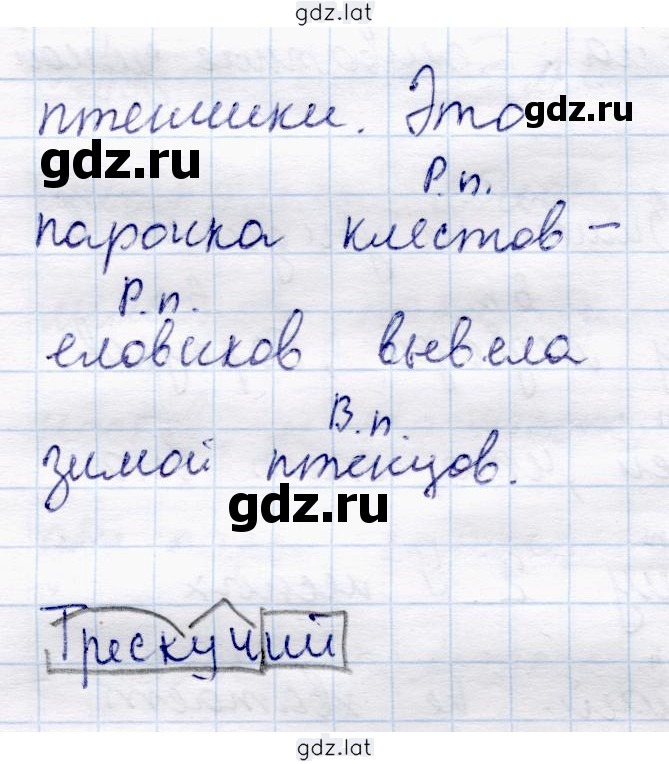 gdz.lat
птенчики. Это
gdz.ru
gdz.ru
Р.п.
парочка клестов –
Р.п.
еловиков вывела
В.п.
зимой птенцов.
gdz.ru
Трескучий
gdz.lat